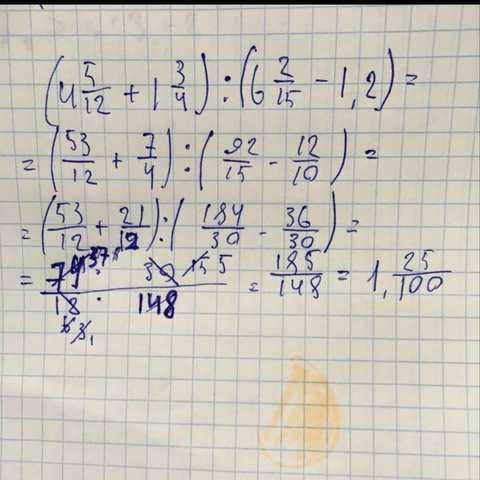 (4 5/12 + 1 3/4) : (6 2/15 - 1,2) =
= (53/12 + 7/4) : (92/15 - 12/10) =
= (53/12 + 21/12) : (184/30 - 36/30) =
= 74 37 · 30 15 5 / 18 · 148 = 185/148 = 1, 25/100
6 3 1